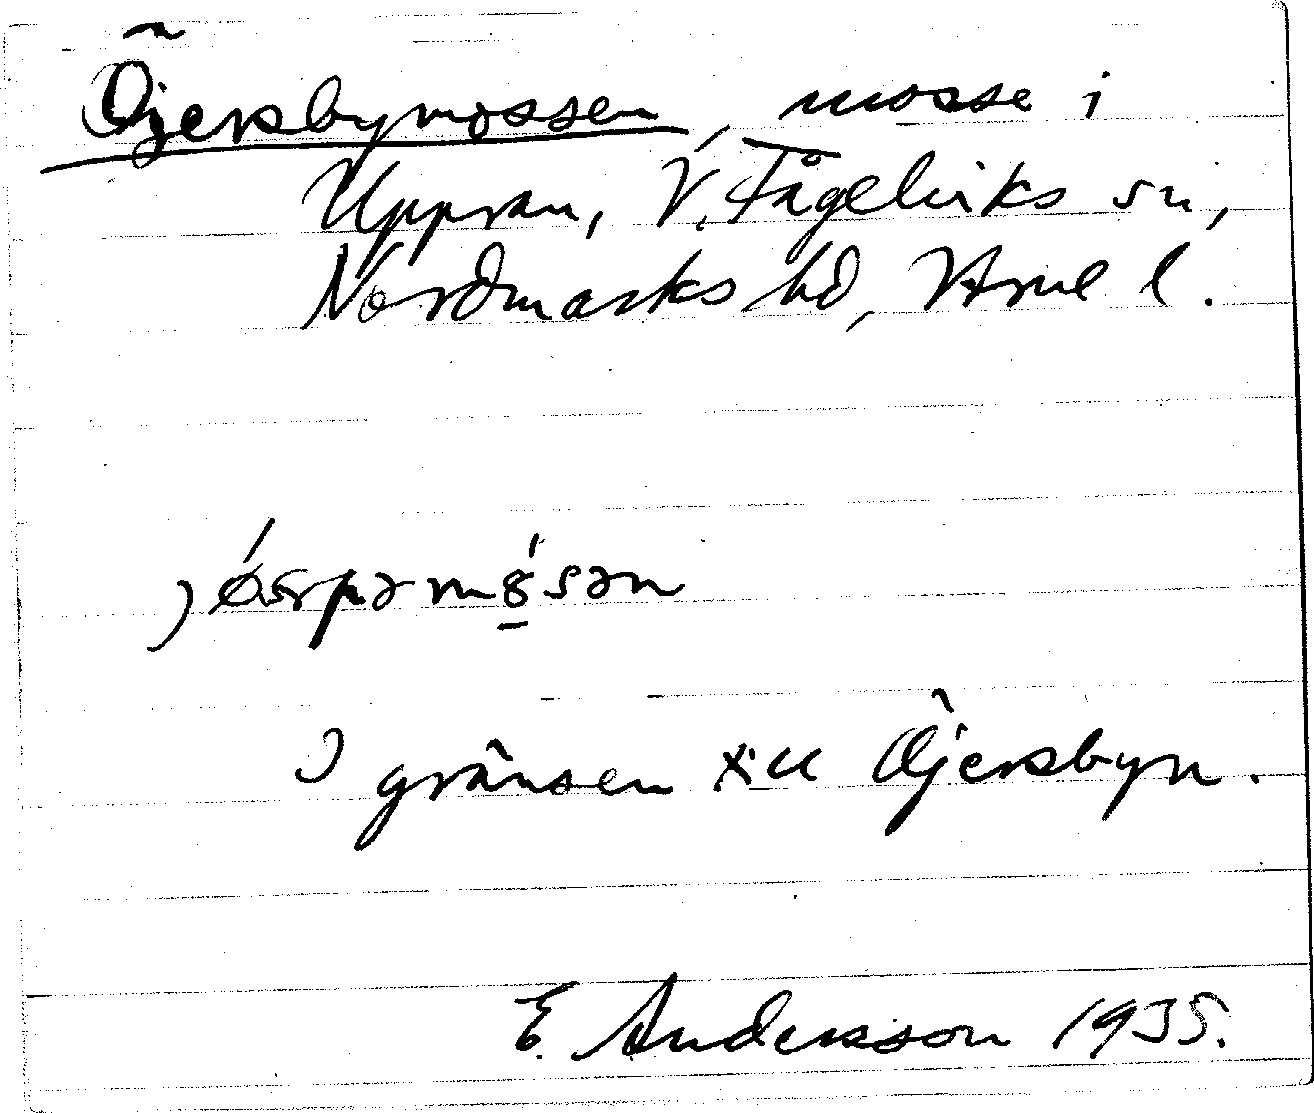 Öjersbymossen, mosse i
Uppran, V. Fågelviks sn,
Nordmarks hd, Vrml l.
I gränsen till Öjersbyn.
E. Andersson 1935.